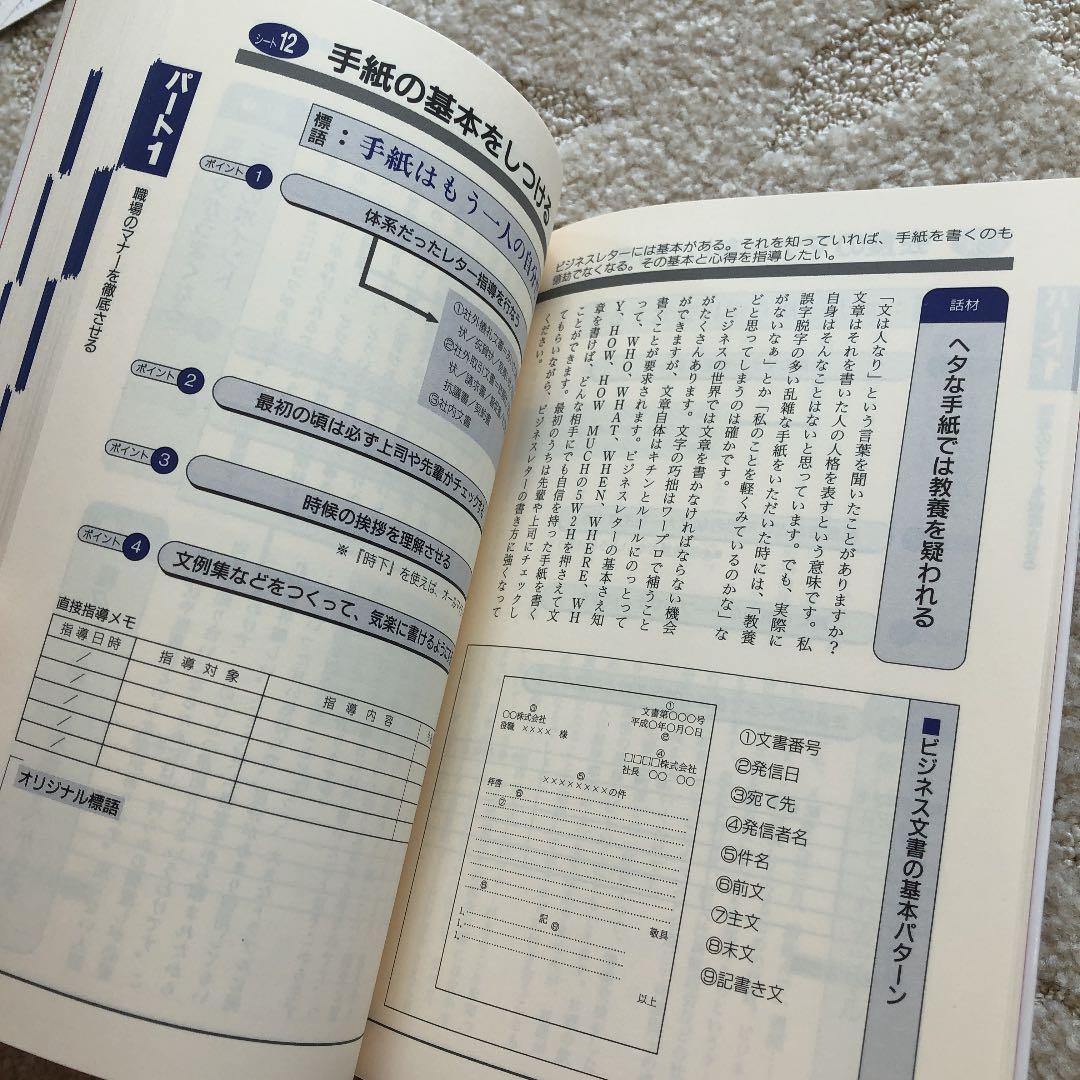 パート1
職場のマナーを徹底させる
シート12
手紙の基本をしつける
標語：手紙はもう一人の自分
ポイント1
体系だったレター指導を行なう
①社外儀礼文書
②社外取引文書
抗議書／契約書
③社内文書
ポイント2
最初の頃は必ず上司や先輩がチェック
ポイント3
時候の挨拶を理解させる
※『時下』を使えば、オール
ポイント4
文例集などをつくって、気楽に書けるように
直接指導メモ
指導日時
指導対象
指導内容
／
／
／
／
／
オリジナル標語
ビジネスレターには基本がある。それを知っていれば、手紙を書くのも
億劫でなくなる。その基本と心得を指導したい。
話材
ヘタな手紙では教養を疑われる
「文は人なり」という言葉を聞いたことがありますか？
文章はそれを書いた人の人格を表すという意味です。私
自身はそんなことはないと思っています。でも、実際に
誤字脱字の多い乱雑な手紙をいただいた時には、「教養
がないなぁ」とか「私のことを軽くみているのかな」な
どと思ってしまうのは確かです。
ビジネスの世界では文章を書かなければならない機会
がたくさんあります。文字の巧拙はワープロで補うこと
ができますが、文章自体はキチンとルールにのっとって
書くことが要求されます。ビジネスレターの基本さえ知
って、WHO、WHAT、WHEN、WHERE、WH
Y、HOW、HOW MUCHの5W2Hを押さえて文
章を書けば、どんな相手にでも自信を持った手紙を書く
ことができます。最初のうちは先輩や上司にチェックし
てもらいながら、ビジネスレターの書き方に強くなって
ください。
■ビジネス文書の基本パターン
①
文書第○○○号
平成○年○月○日
②
③
○○株式会社
役職 ×××× 様
④
□□□□株式会社
社長 ○○ ○○
⑤
××××××××の件
拝啓 ⑥
⑦
⑧
敬具
記
⑨
1.
1.
1.
以上
①文書番号
②発信日
③宛て先
④発信者名
⑤件名
⑥前文
⑦主文
⑧末文
⑨記書き文